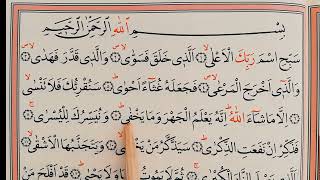 بِسْمِ اللّٰهِ الرَّحْمٰنِ الرَّحِيمِ
سَبِّحِ اسْمَ رَبِّكَ الْاَعْلٰىۙ الَّذٖى خَلَقَ فَسَوّٰىۙ وَالَّذٖى قَدَّرَ فَهَدٰىۙ
وَالَّذٖى اَخْرَجَ الْمَرْعٰىۙ فَجَعَلَهُ غُثَٓاءً اَحْوٰىۜ سَنُقْرِئُكَ فَلَا تَنْسٰىۙ
اِلَّا مَا شَٓاءَ اللّٰهُۜ اِنَّهُ يَعْلَمُ الْجَهْرَ وَمَا يَخْفٰىۜ وَنُيَسِّرُكَ لِلْيُسْرٰىۚ
فَذَكِّرْ اِنْ نَفَعَتِ الذِّكْرٰىۜ سَيَذَّكَّرُ مَنْ يَخْشٰىۙ وَيَتَجَنَّبُهَا الْاَشْقٰىۙ